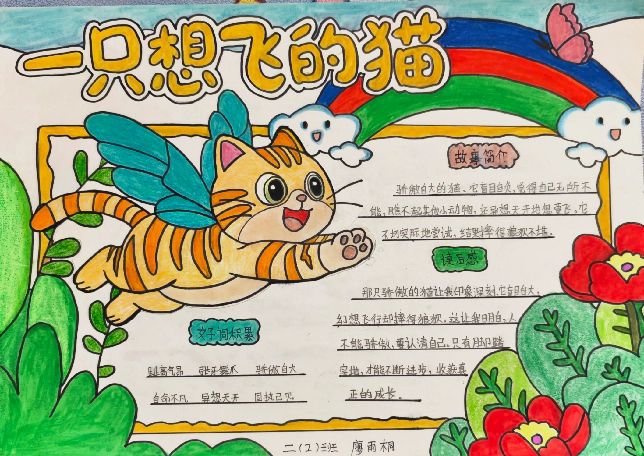 一只想飞的猫
故事简介
骄傲自大的猫,它盲目自大,觉得自己无所不
能,瞧不起其他小动物,还异想天开地想要飞,它
不切实际地尝试,结果摔得狼狈不堪。
读后感
那只骄傲的猫让我印象深刻,它盲目自大,
幻想飞行却摔得狼狈,这让我明白,人
不能骄傲,要认清自己,只有脚踏
实地,才能不断进步,收获真
正的成长。
好词积累
趾高气昂 张牙舞爪 骄傲自大
自命不凡 异想天开 固执己见
二(2)班 廖雨桐